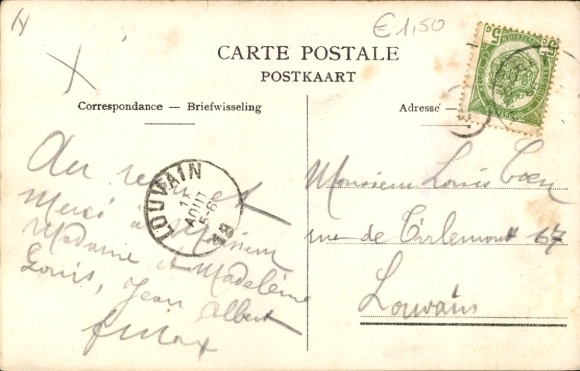 € 1,50
CARTE POSTALE
POSTKAART
Correspondance — Briefwisseling
Adresse —
Au revoir et
Merci à Monsieur
Madame et Madelème
Louis, Jean Albert
LOUVAIN
AOUT
Monsieur Louis Coen
rue de Tirlemont 67
Louvain